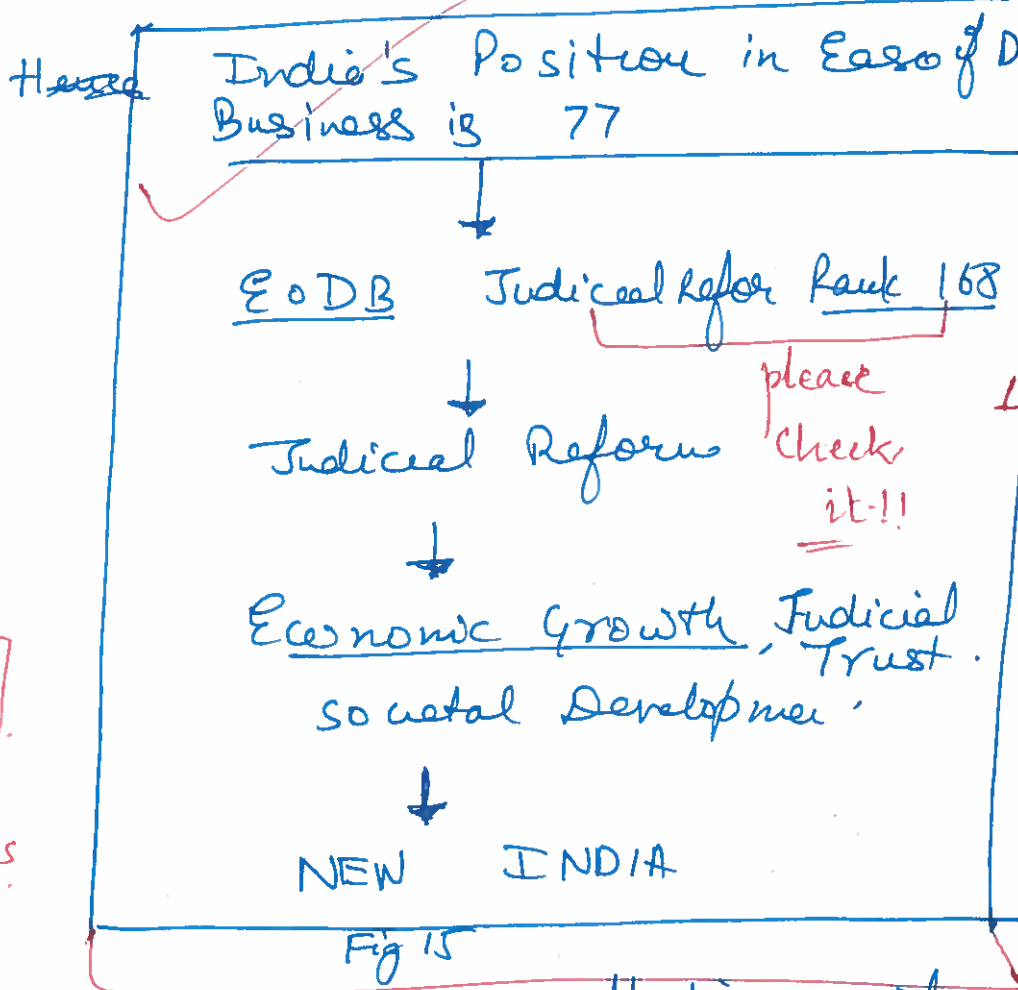 India's Position in Ease of D
Business is 77
EoDB Judiceal Refor Rank 168
please
check
it!!
Judicial Reforms
Economic Growth, Judicial
Trust.
societal Developmen.
NEW INDIA
s
Fig 15